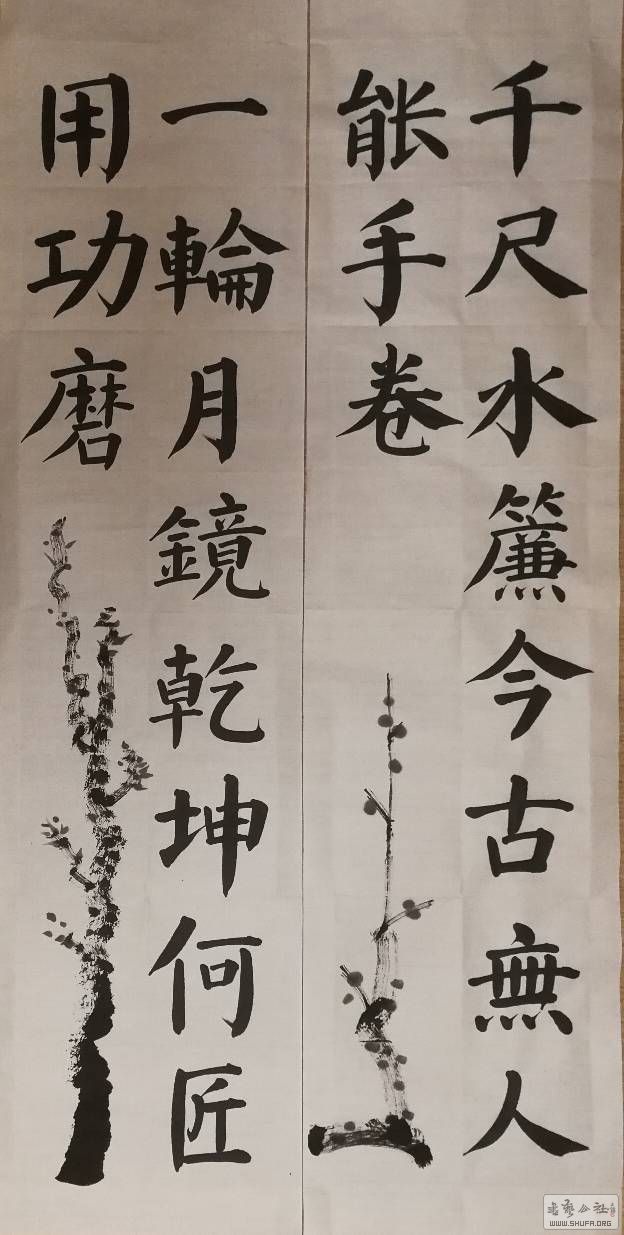 千尺水簾今古無人
能手卷
一輪月鏡乾坤何匠
用功磨
书艺公社
WWW.SHUFA.ORG